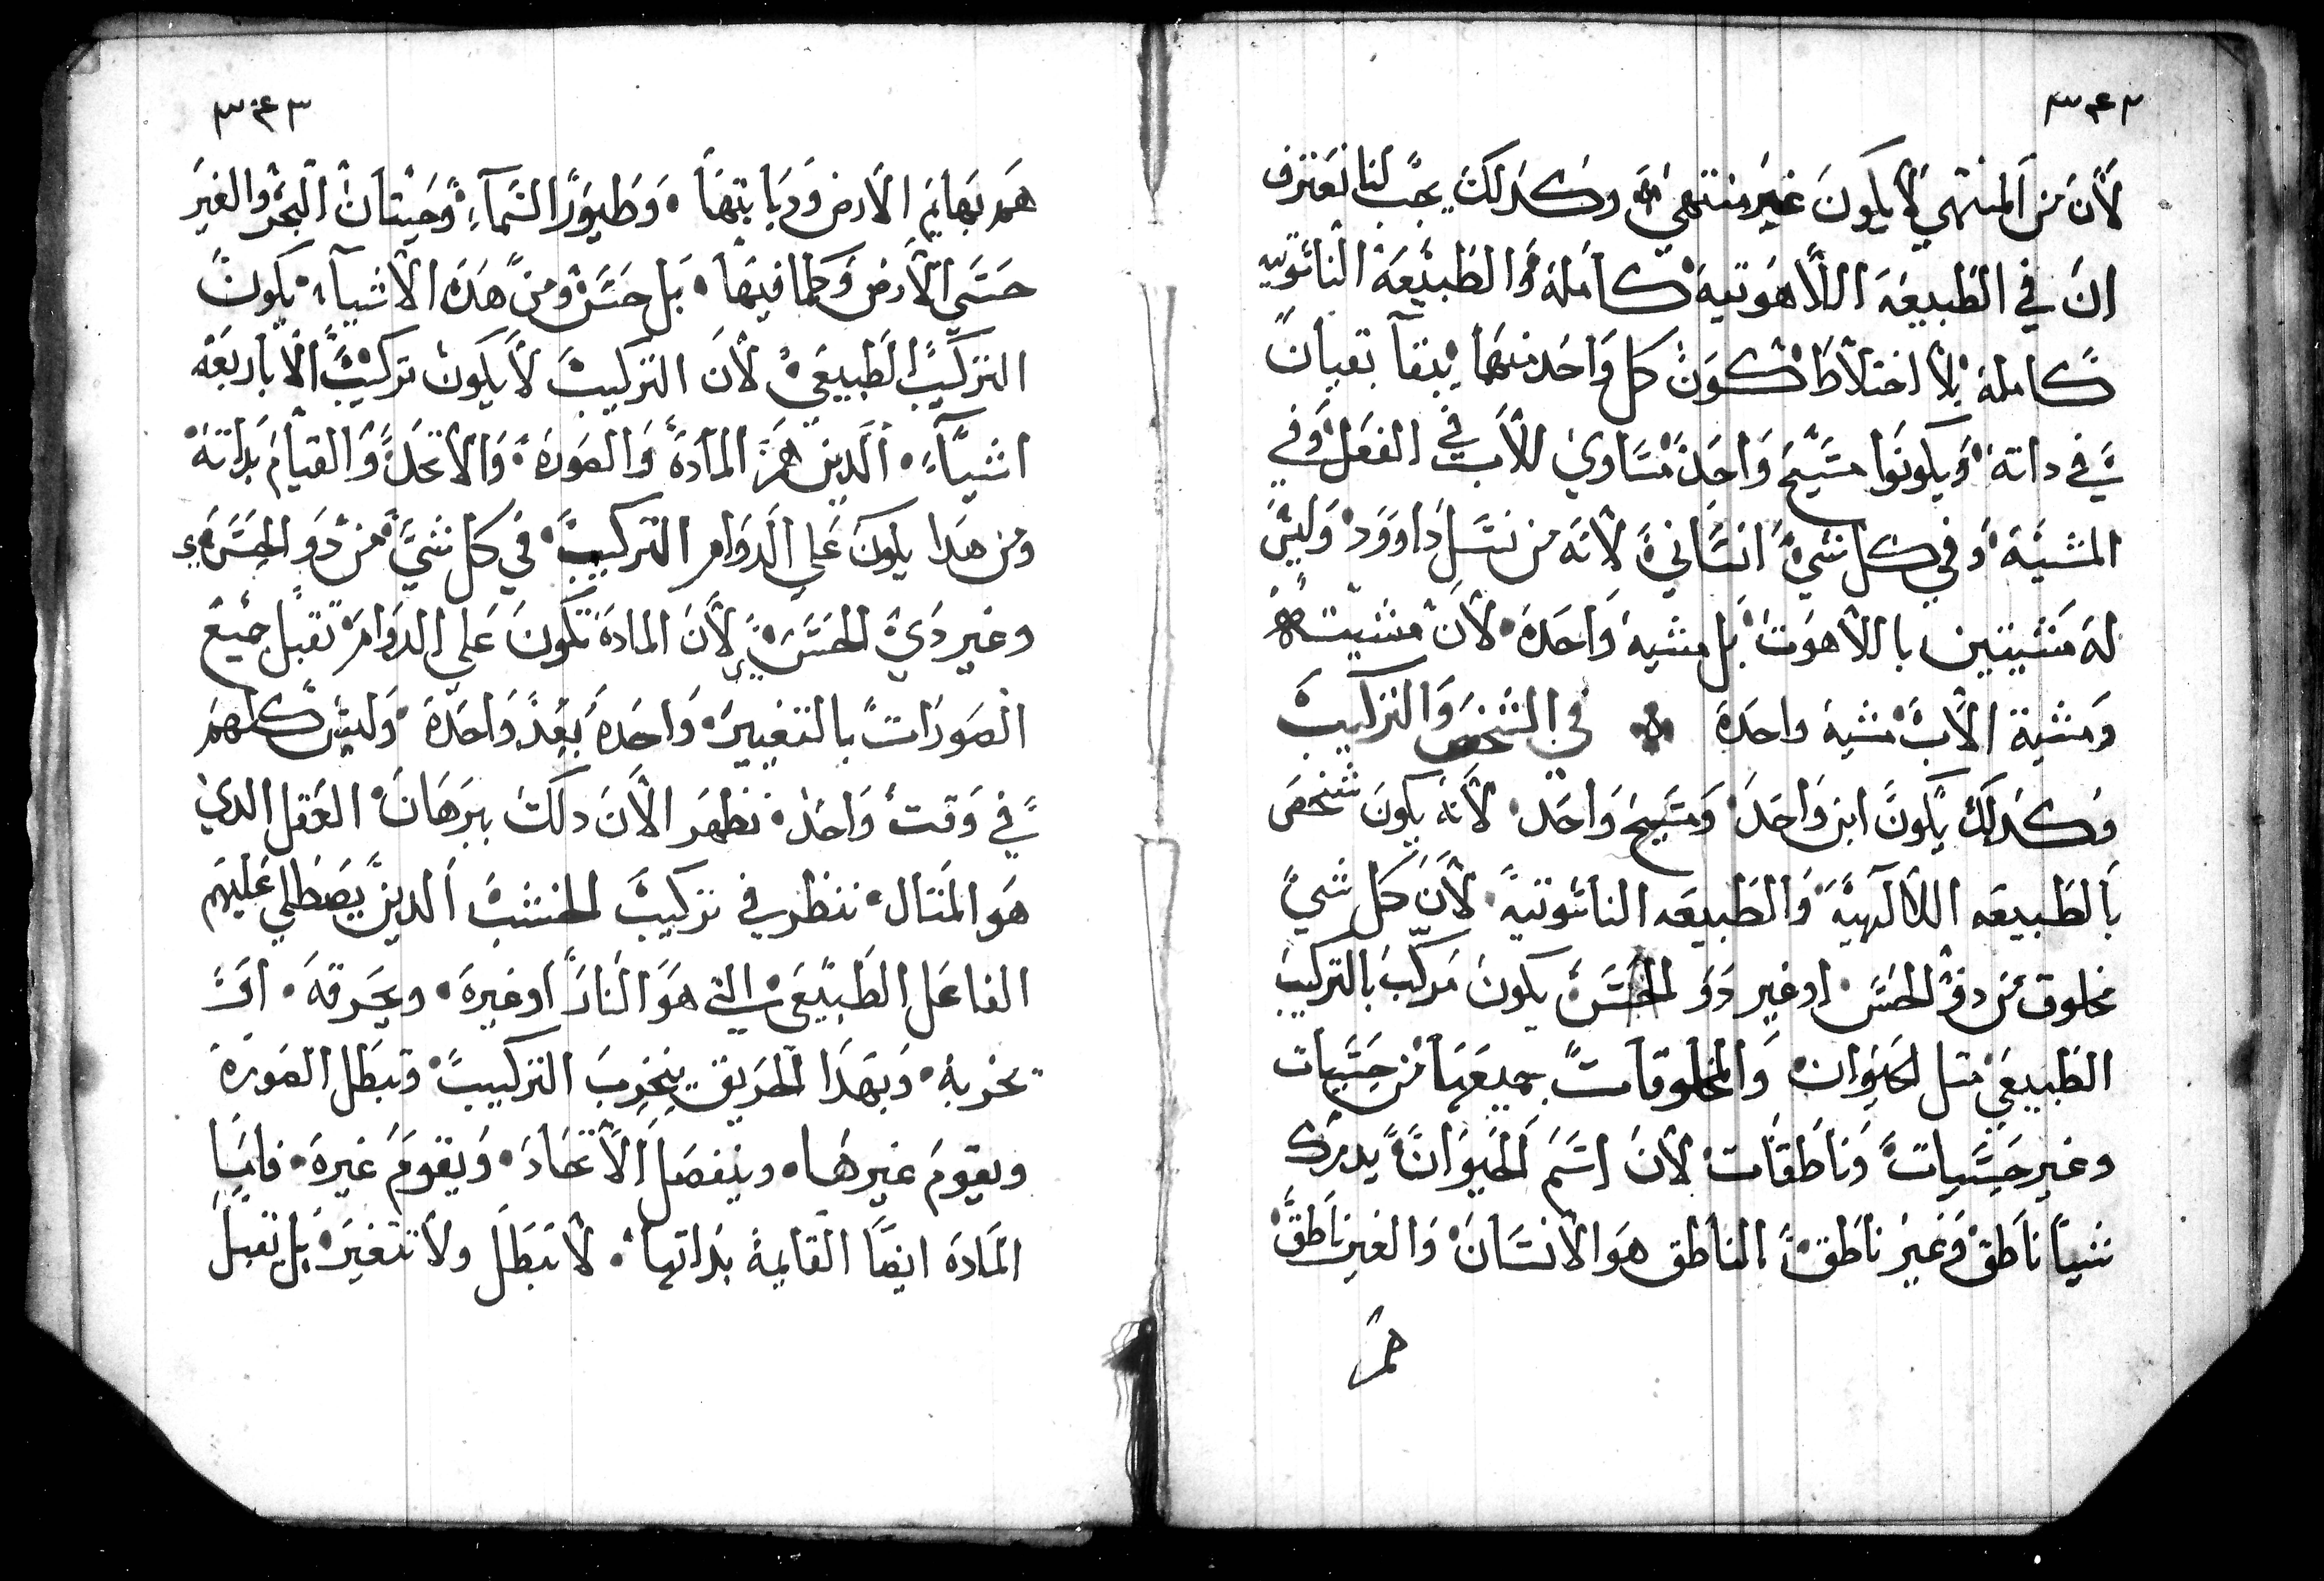 ٣٤٢
لأن من المنتهي لا يكون غير منتهي وكذلك يجب لنا نعترف
ان في الطبيعه اللاهوتيه كامله والطبيعة الناسوتيه
كاملة بلا اختلاط تكون كل واحد منهما بتقا بتعبان
في داته ويكونوا مسيح واحد مساوي للأب في الفعل وفي
المشيه وفي كل شي انسانية لأنه من نسل داوود وليس
له مشيتين باللاهوت بل مشية واحدة لأن مشيته
ومشية الأب مشية واحدة في الشخص والتركيب
وكذلك يكون ابن واحد ومسيح واحد لأنه يكون شخص
بالطبيعه اللالهية والطبيعه الناسوتية لأن كل شي
مخلوق من دو الحس او غير دو الحس يكون مركب بالتركيب
الطبيعي متل الحيوان والمخلوقات جميعها من حسيات
وغير حسيات وناطقات لأن اسم الحيوان يدرك
شيا ناطق وغير ناطق الناطق هو الانسان والغير ناطق
هم
٣٤٣
هم بهايم الارض ودباتها وطيور السمآء وحيتان البحر والغير
حسي الأرض وكلما فيها بل حسن ومن هده الأشيآء يكون
التركيب الطبيعي لأن التركيب لا يكون تركيب الا باربعه
اشيآء الدين هم المادة والصورة والاتحاد والقيام بداته
ومن هدا يكون علي الدوام التركيب في كل شي من دو الحس
وغير دي الحس لأن المادة تكون علي الدوام تقبل جميع
الصورات بالتغيير واحدة بعد واحدة وليس كلهم
في وقت واحد نظهر الأن دلك ببرهان العقل الدي
هو المتال ننظر في تركيب الخشب الدين يصطلي عليهم
الفاعل الطبيعي التي هو النار او غيره ويحرقه او
يخربه وبهدا الحريق ينخرب التركيب وتبطل الصورة
ويقوم غيرها وينفصل الأتحاد ويقوم غيره فاما
المادة ايضا القايمة بداتها لا تبطل ولا تتغير بل تقبل